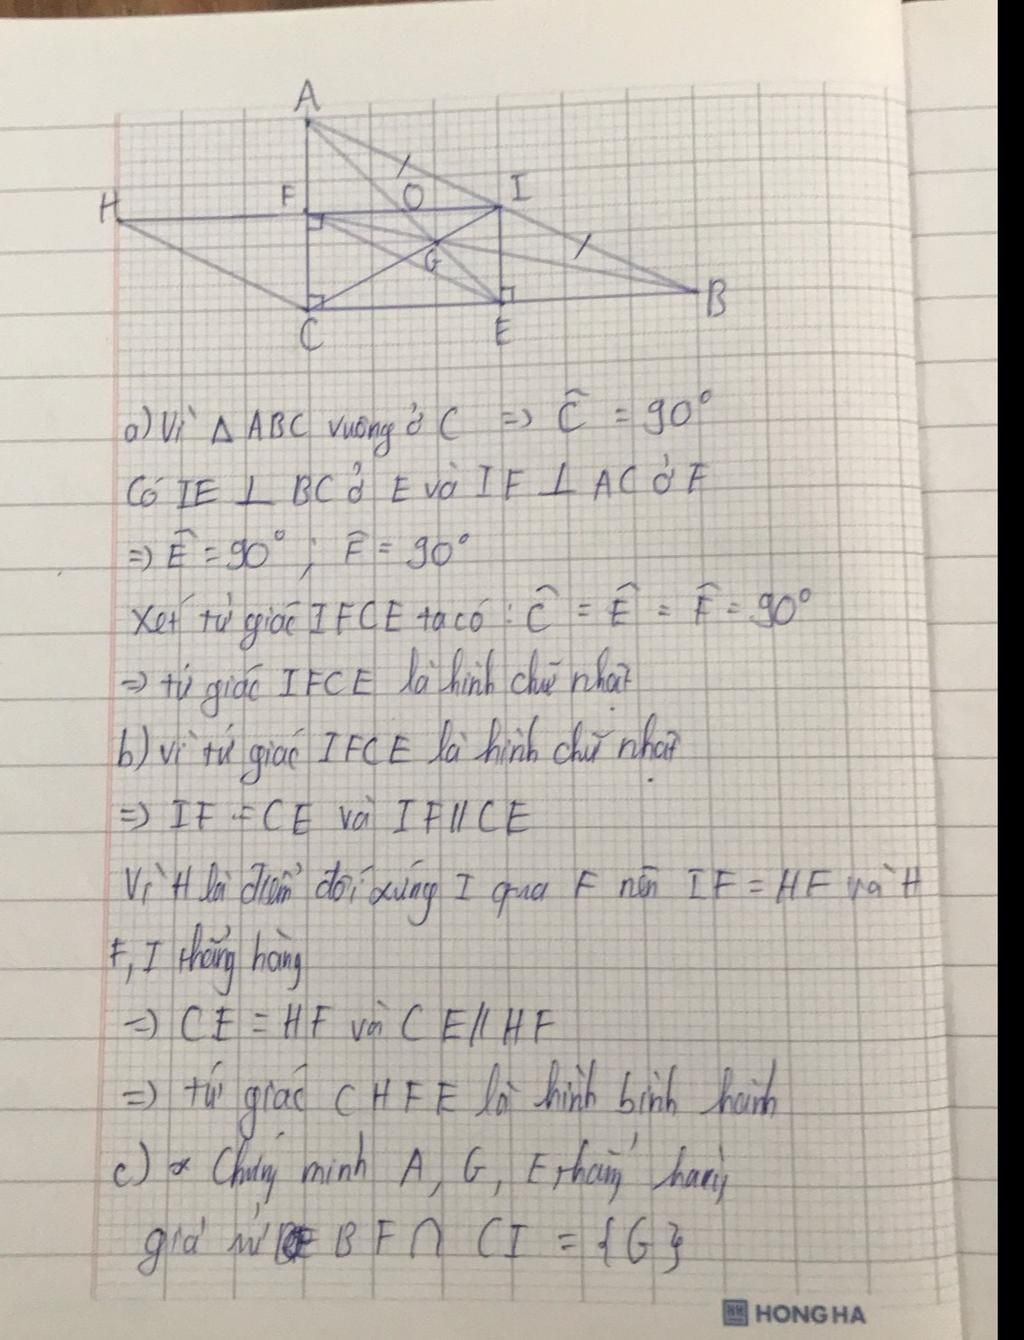 A
F
O
I
H
G
B
C
E
a) Vì Δ ABC vuông ở C => Ĉ = 90°
Có IE ⊥ BC ở E và IF ⊥ AC ở F
=> Ê = 90° ; F̂ = 90°
Xét tứ giác IFCE ta có : Ĉ = Ê = F̂ = 90°
=> tứ giác IFCE là hình chữ nhật
b) Vì tứ giác IFCE là hình chữ nhật
=> IF = CE và IF // CE
Vì H là điểm đối xứng I qua F nên IF = HF và H
F, I thẳng hàng
=> CE = HF và CE // HF
=> tứ giác CHFE là hình bình hành
c) * Chứng minh A, G, E thẳng hàng
giả sử BF ∩ CI = {G}
HONG HA